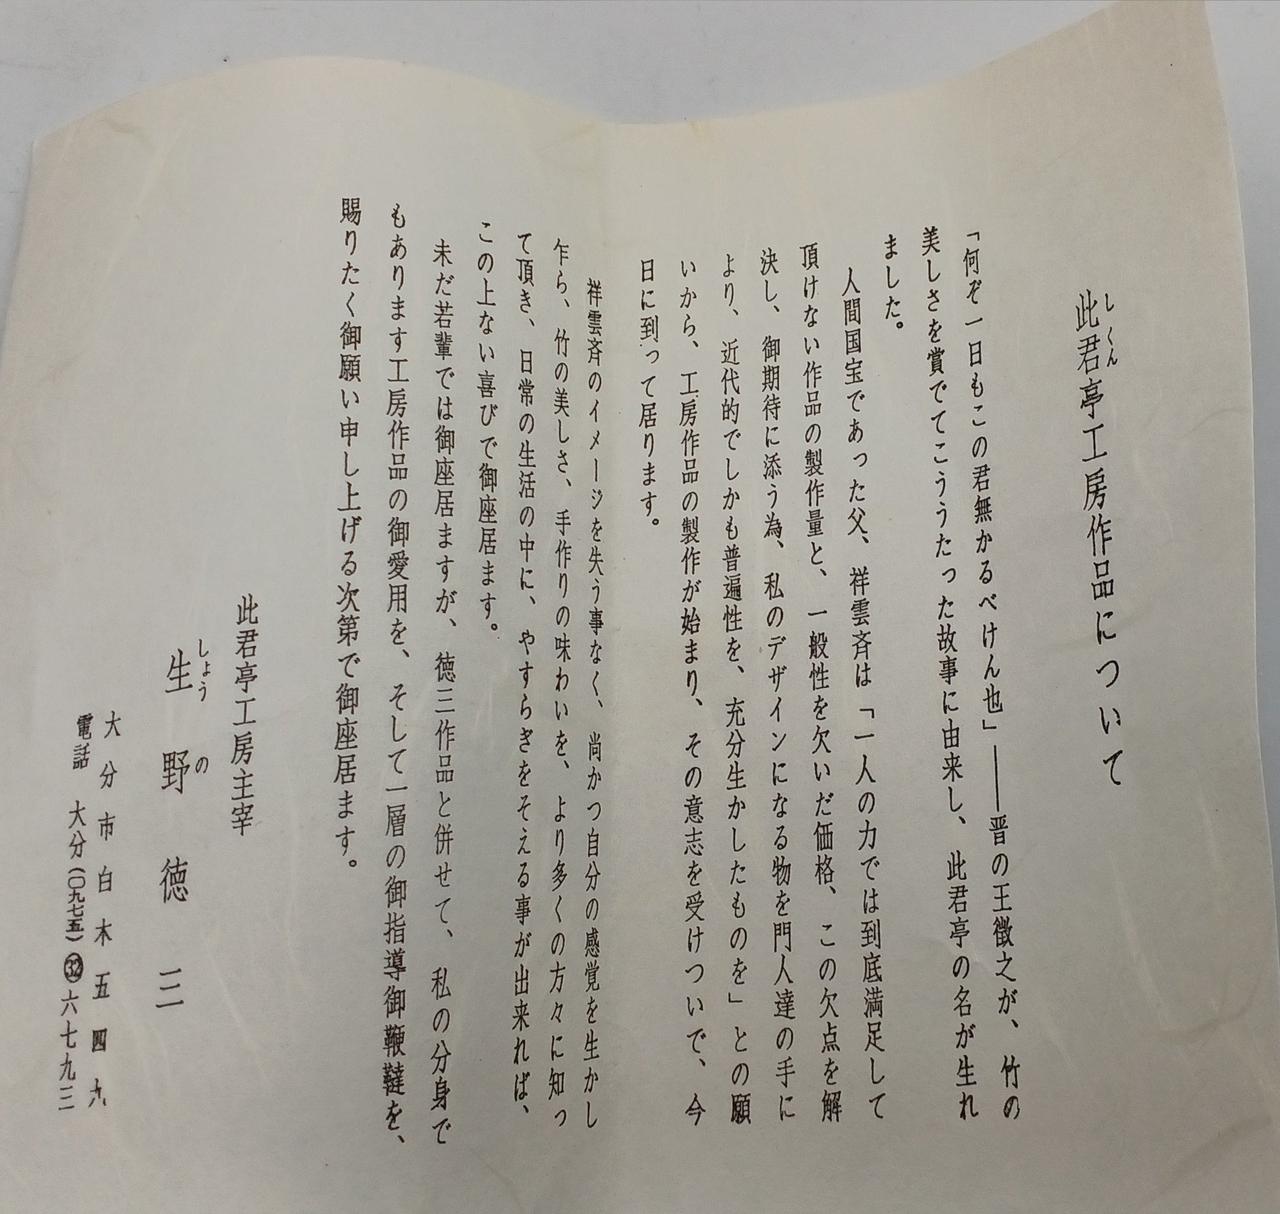 此君亭工房作品について
しくん
「何ぞ一日もこの君無かるべけん也」――晋の王徴之が、竹の
美しさを賞でてこううたった故事に由来し、此君亭の名が生れ
ました。
人間国宝であった父、祥雲斉は「一人の力では到底満足して
頂けない作品の製作量と、一般性を欠いだ価格、この欠点を解
決し、御期待に添う為、私のデザインになる物を門人達の手に
より、近代的でしかも普遍性を、充分生かしたものを」との願
いから、工房作品の製作が始まり、その意志を受けついで、今
日に到って居ります。
祥雲斉のイメージを失う事なく、尚かつ自分の感覚を生かし
乍ら、竹の美しさ、手作りの味わいを、より多くの方々に知っ
て頂き、日常の生活の中に、やすらぎをそえる事が出来れば、
この上ない喜びで御座居ます。
未だ若輩では御座居ますが、徳三作品と併せて、私の分身で
もあります工房作品の御愛用を、そして一層の御指導御鞭韃を、
賜りたく御願い申し上げる次第で御座居ます。
此君亭工房主宰
生野徳三
しょうの
大分市白木五四九
電話 大分(〇九七五)㉜六七九三